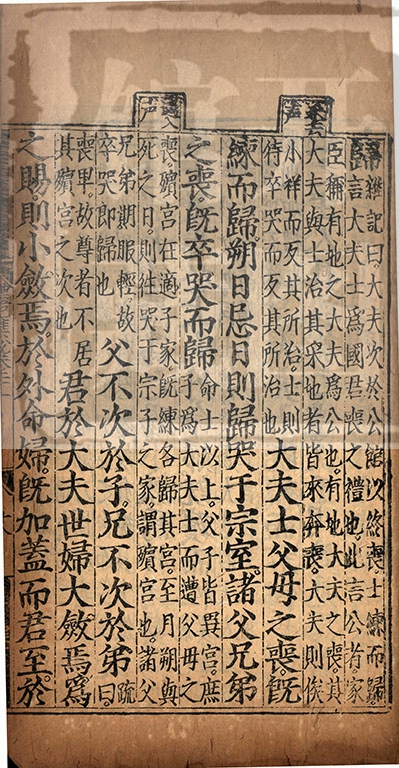 歸
雜記曰。大夫次於公館以終喪。士練而歸。
言大夫士爲國君喪之禮也。此言公者。家
臣稱有地之大夫爲公也。有地大夫之喪。其
大夫與士治其采地者。皆來奔喪。大夫則俟
小祥而反其所治。士則
待卒哭而反其所治也
大夫士父母之喪。既
練而歸。朔日忌日則歸哭于宗室。諸父兄弟
之喪。既卒哭而歸
命士以上。父子皆異宮。庶
子爲大夫士而遭父母之
喪。殯宮在適子家。既練各歸其宮。至月朔與
死之日。則往哭于宗子之家。謂殯宮也。諸父
兄弟期服輕。故
卒哭即歸也
父不次於子。兄不次於弟
疏
曰。
喪畢。故尊者不居
其殯宮之次也
君於大夫世婦大斂焉。爲
之賜。則小斂焉。於外命婦。既加蓋而君至。於